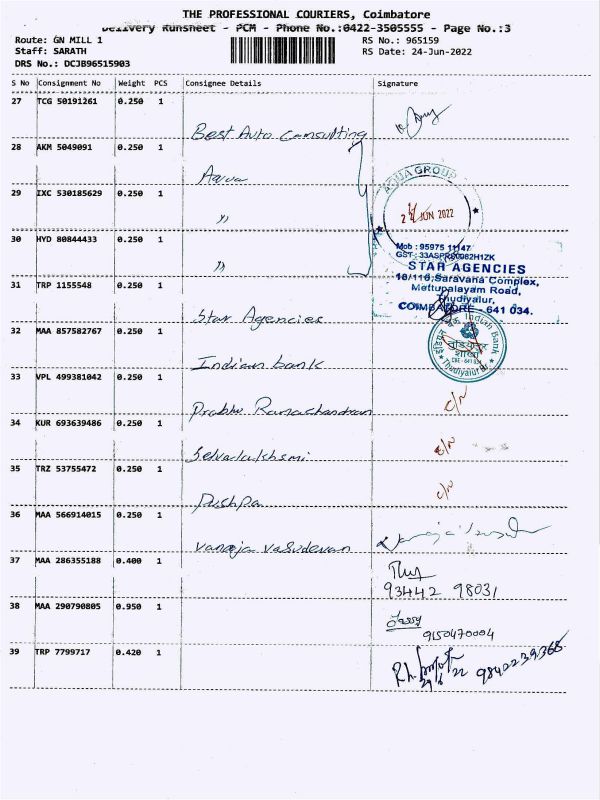 THE PROFESSIONAL COURIERS, Coimbatore
Delivery Runsheet - PCM - Phone No.:0422-3505555 - Page No.:3
Route: GN MILL 1
RS No.: 965159
Staff: SARATH
RS Date: 24-Jun-2022
DRS No.: DCJB96515903
S No Consignment No Weight PCS Consignee Details Signature
27 TCG 50191261 0.250 1
Best Auto Consulting
28 AKM 5049091 0.250 1
Aqua
AQUA GROUP
29 IXC 530185629 0.250 1
JUN 2022
30 HYD 80844433 0.250 1
Mob : 95975 11147
STAR AGENCIES
31 TRP 1155548 0.250 1
Saravana Complex,
Mettupalayam Road,
Thudiyalur,
COIMBATORE - 641 034.
Star Agencies
32 MAA 857582767 0.250 1
Indian Bank
Thudiyalur Br.
Indian bank
33 VPL 499381042 0.250 1
Prabhu Ramachandran
34 KUR 693639486 0.250 1
Selvalakshmi
35 TRZ 53755472 0.250 1
Pushpa
36 MAA 566914015 0.250 1
Vanaja Vasudevan
37 MAA 286355188 0.400 1
93442 98031
38 MAA 290790805 0.950 1
9150470004
39 TRP 7799717 0.420 1
9840239368